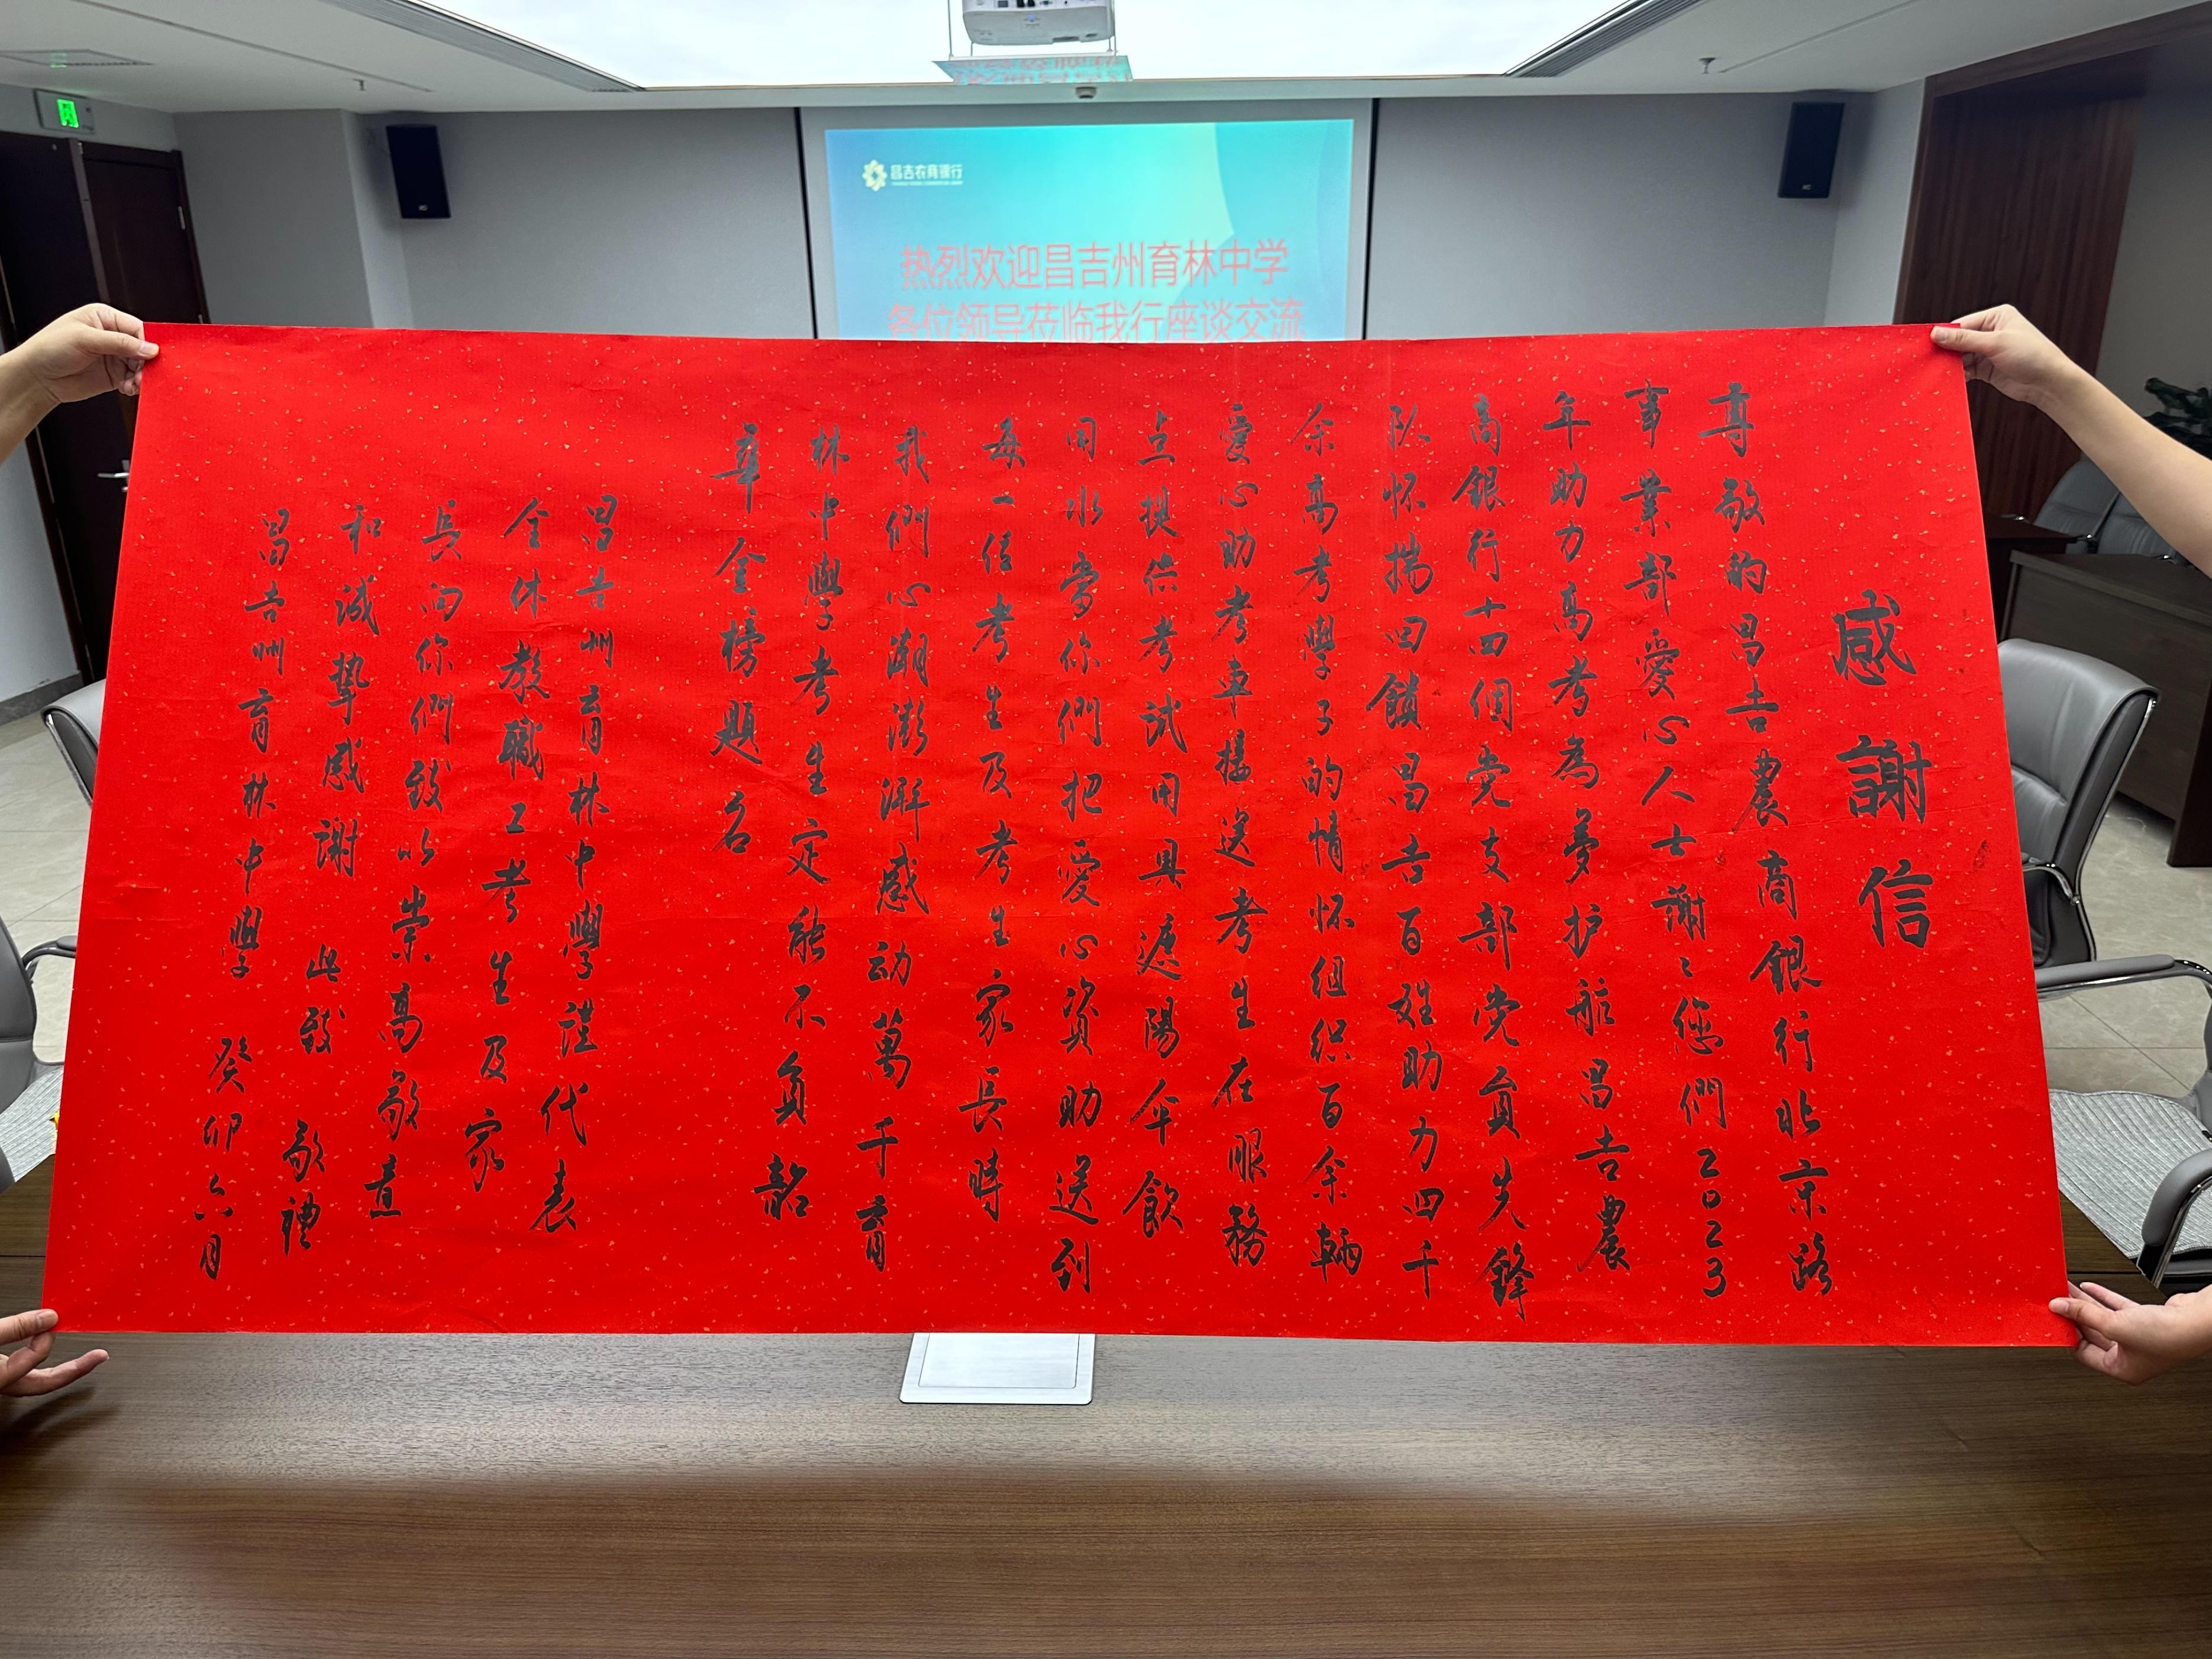 昌吉农商银行
热烈欢迎昌吉州育林中学
各位领导莅临我行座谈交流
感謝信
尊敬的昌吉農商銀行北京路
事業部愛心人士謝〻您們2023
年助力高考為夢护航昌吉農
商銀行十四個党支部党員先鋒
队怀揣回饋昌吉百姓助力四千
余高考學子的情怀组织百余輛
愛心助考車接送考生在服務
点提供考试用具遮陽伞飲
用水當你們把愛心資助送到
每一位考生及考生家長時
我們心潮澎湃感动萬千育
林中學考生定能不負韶
華金榜題名
昌吉州育林中學謹代表
全体教職工考生及家
長向你們致以崇高敬意
和诚挚感謝 此致 敬禮
昌吉州育林中學 癸卯六月